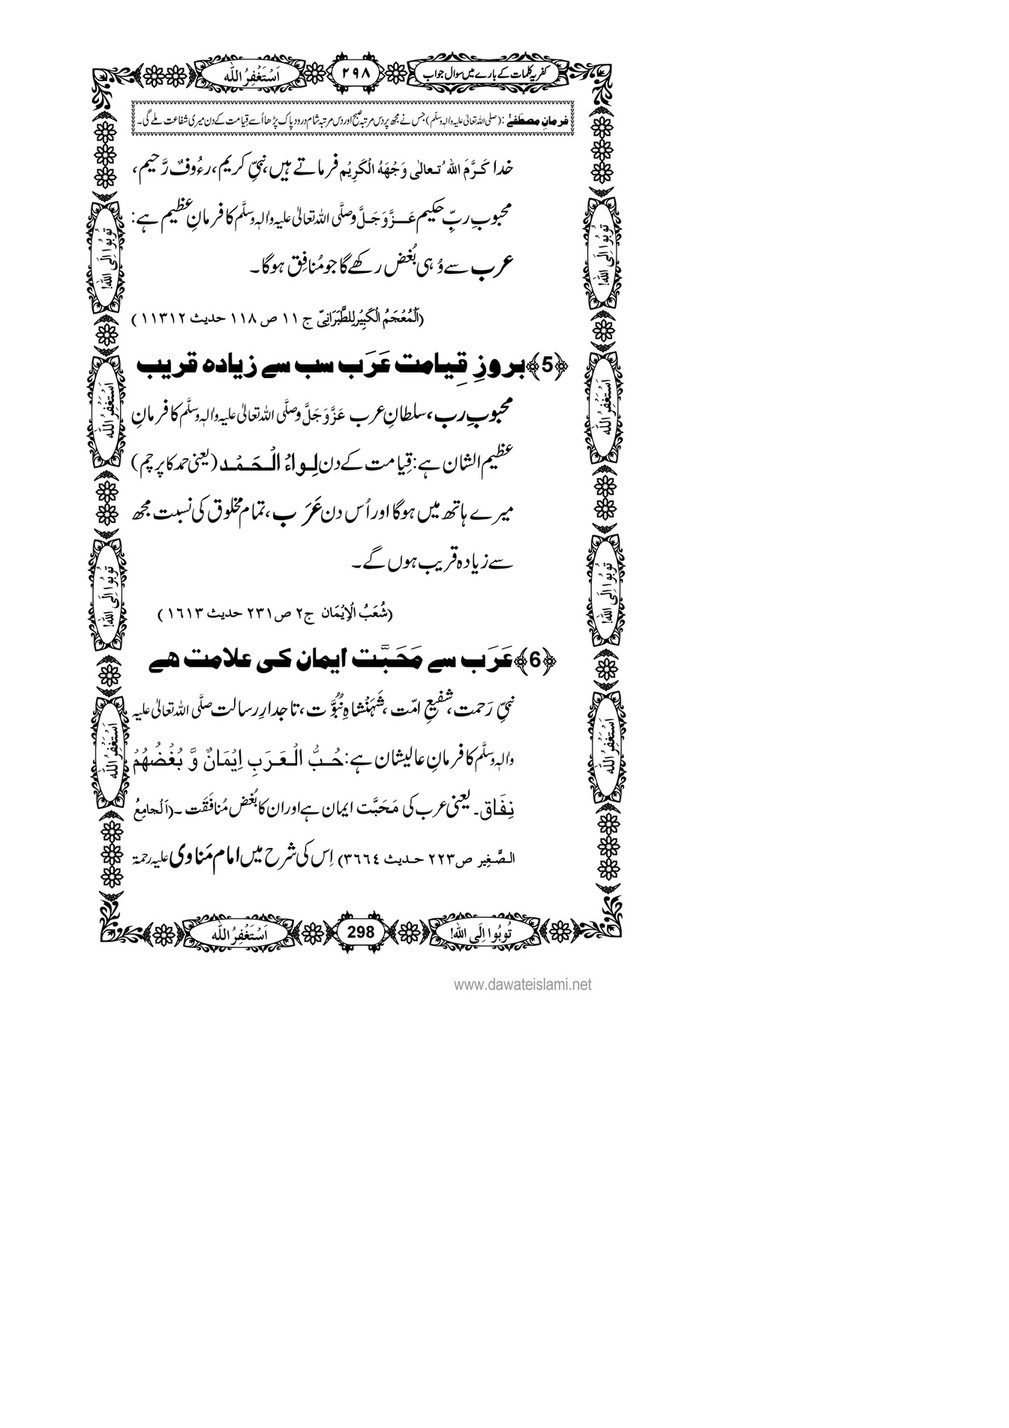 کفریہ کلمات کے بارے میں سوال جواب
۲۹۸
اَسْتَغْفِرُ اللّٰه
فرمانِ مصطفےٰ : (صلی اللہ تعالیٰ علیہ والہٖ وسلّم) جس نے مجھ پر دس مرتبہ صبح اور دس مرتبہ شام درود پاک پڑھا اُسے قیامت کے دن میری شفاعت ملے گی۔
خدا کَرَّمَ اللهُ تعالٰی وَجْهَهُ الْكَرِيْم فرماتے ہیں، نبیِّ کریم، رءُوفٌ رَّحیم،
محبوبِ ربِّ حکیم عَزَّوَجَلَّ وصلَّی اللہ تعالیٰ علیہ والہٖ وسلَّم کا فرمانِ عظیم ہے:
عرب سے وُہی بُغض رکھے گا جو مُنافِق ہوگا۔
(اَلْمُعْجَمُ الْكَبِيْرلِلطَّبَرَانِیّ ج ١١ ص ١١٨ حدیث ١١٣١٢)
﴿5﴾ بروزِ قِیامت عَرَب سب سے زیادہ قریب
محبوبِ رب، سلطانِ عرب عَزَّوَجَلَّ وصلَّی اللہ تعالیٰ علیہ والہٖ وسلَّم کا فرمانِ
عظیم الشان ہے: قِیامت کے دن لِواءُ الْحَمْد (یعنی حمد کا پرچم)
میرے ہاتھ میں ہوگا اور اُس دن عَرَب، تمام مخلوق کی نسبت مجھ
سے زیادہ قریب ہوں گے۔
(شُعَبُ الْاِیْمَان ج٢ ص٢٣١ حدیث ١٦١٣)
﴿6﴾ عَرَب سے مَحَبَّت ایمان کی علامت ھے
نبیِّ رَحمت، شفیعِ امّت، شَہَنْشاہِ نُبُوَّت، تاجدارِ رسالت صلَّی اللہ تعالیٰ علیہ
والہٖ وسلَّم کا فرمانِ عالیشان ہے: حُبُّ الْعَرَبِ اِيْمَانٌ وَّ بُغْضُهُمْ
نِفَاق۔ یعنی عرب کی مَحَبَّت ایمان ہے اور ان کا بُغض مُنافَقَت۔ (اَلْجامِعُ
الصَّغِير ص٢٢٣ حدیث ٣٦٦٤) اِس کی شرح میں امام مَناوی علیہ رحمۃ
تُوبُوا اِلَی اللّٰه!
اَسْتَغْفِرُ اللّٰه
تُوبُوا اِلَی اللّٰه!
اَسْتَغْفِرُ اللّٰه
تُوبُوا اِلَی اللّٰه!
اَسْتَغْفِرُ اللّٰه
تُوبُوا اِلَی اللّٰه!
اَسْتَغْفِرُ اللّٰه
تُوبُوا اِلَی اللّٰه!
298
اَسْتَغْفِرُ اللّٰه
www.dawateislami.net